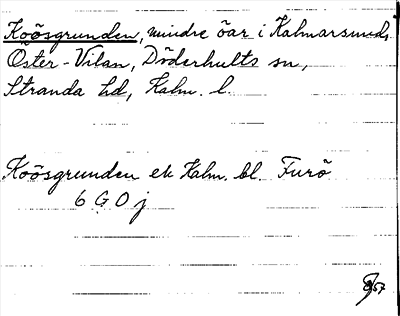 Koösgrunden, mindre öar i Kalmarsund,
Öster-Vilan, Döderhults sn,
Stranda hd, Kalm. l.
Koösgrunden ek Kalm. bl. Furö
6 G 0 j